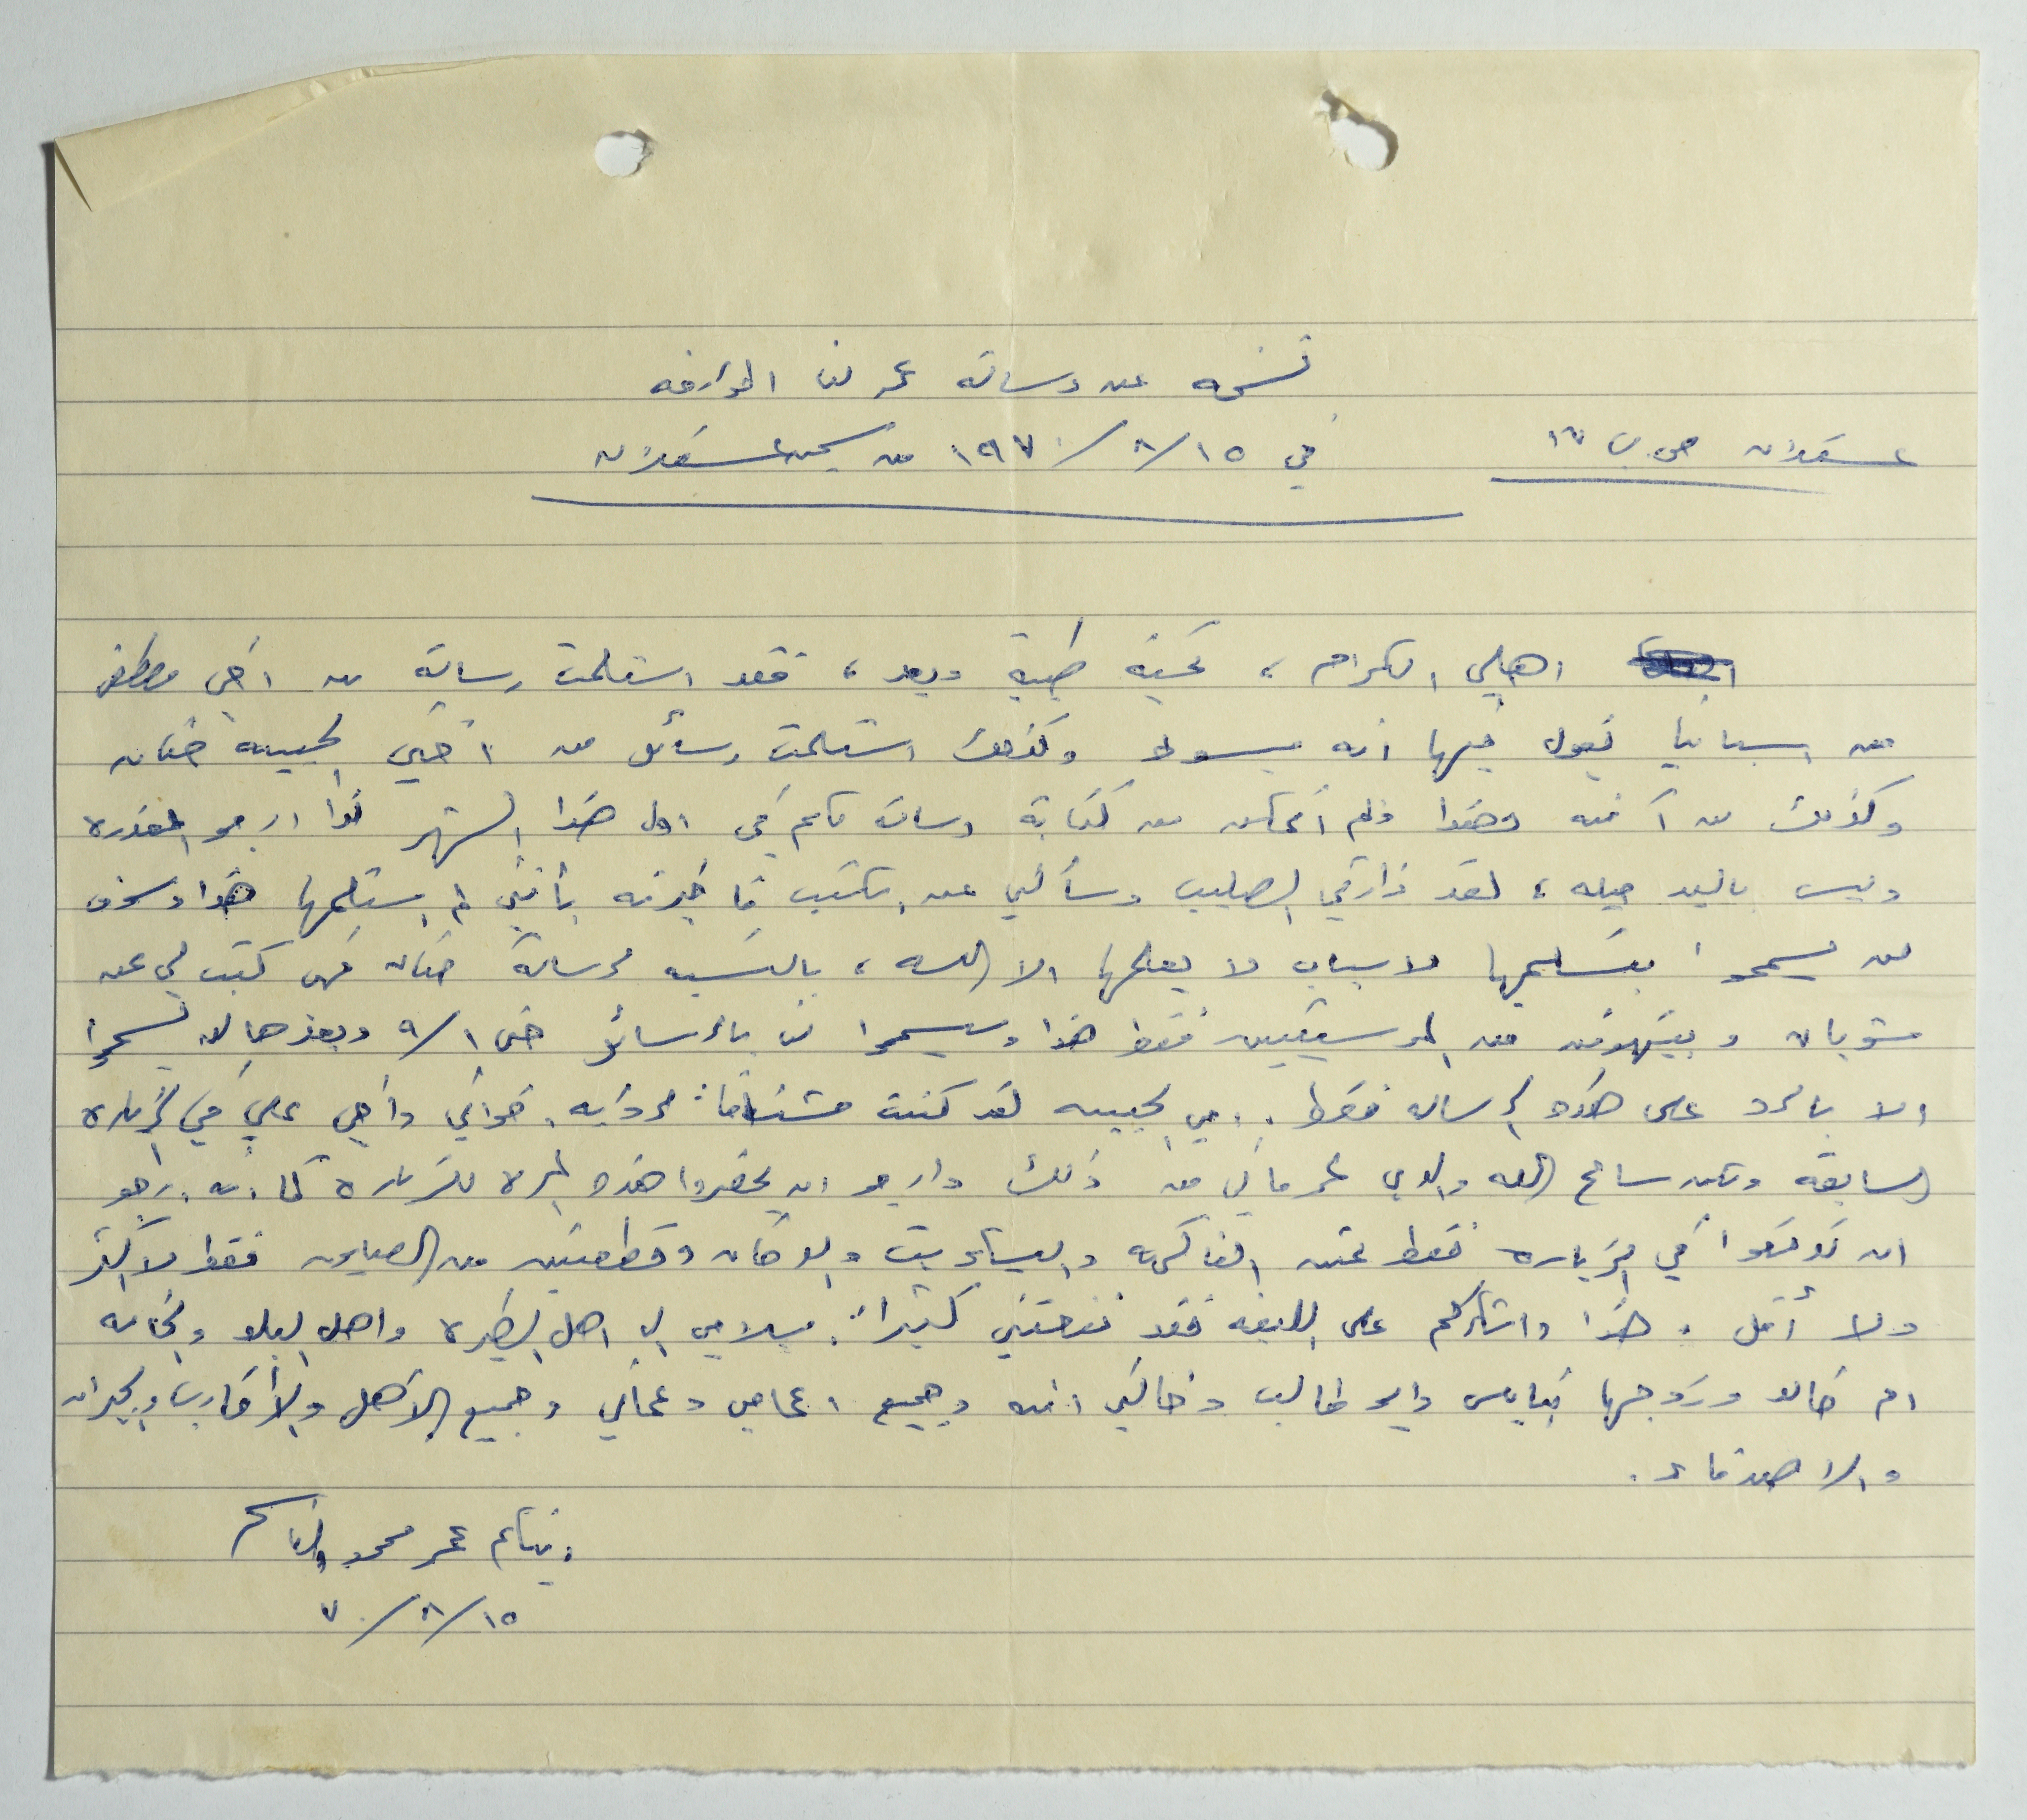 نسخه عن رسالة عمر لنا المؤرخه
عسقلان ص.ب ١٧
في ١٥/٨/١٩٧٠ من سجن عسقلان
اهلي الكرام، تحية طيبة وبعد، فقد استلمت رسالة من اخي مصطفى
من اسبانيا يقول فيها انه مبسوط وكذلك استلمت رسائل من اختي الحبيبه حنان
وكذلك من آمنه هذا ولم اتمكن من كتابة رسالة لكم في اول هذا الشهر لذا ارجو المعذره
وليس باليد حيله، لقد زارني الصليب وسألني عن الكتب فأخبرته بأنني لم استلمها هذا وسوف
لن يسمحوا بتسليمها لاسباب لا يعلمها الا الله، بالنسبه لرسالة حنان فهي كتبت لي عن
شوبان وبيتهوفن من الموسيقيين فقط هذا وسيسمحوا لنا بالرسائل حتى ١/٩ وبعدها لن يسمحوا
الا بالرد على هذه الرساله فقط. امي الحبيبه لقد كنت مشتاقاً لرؤية اخواتي وأخي علي في الزياره
السابقه ولكن سامح الله والدي لحرماني من ذلك وارجو ان يحضروا هذه المره للزياره كما انه ارجو
ان توضعوا في الزياره فقط ثمن الفاكهه والبسكويت والدخان وقطعتين من الصابون فقط لا أكثر
ولا أقل. هذا واشكركم على البلوزه فقد نفعتني كثيراً. سلامي الى اهل البيره واهل البلد والخاله
ام خالد وزوجها بنابلس وابو طالب وخالتي امنه وجميع اعمامي وعماتي وجميع الأهل والأقارب والجيران
والاصدقاء.
ابنكم عمر محمود القاسم
١٥/٨/٧٠